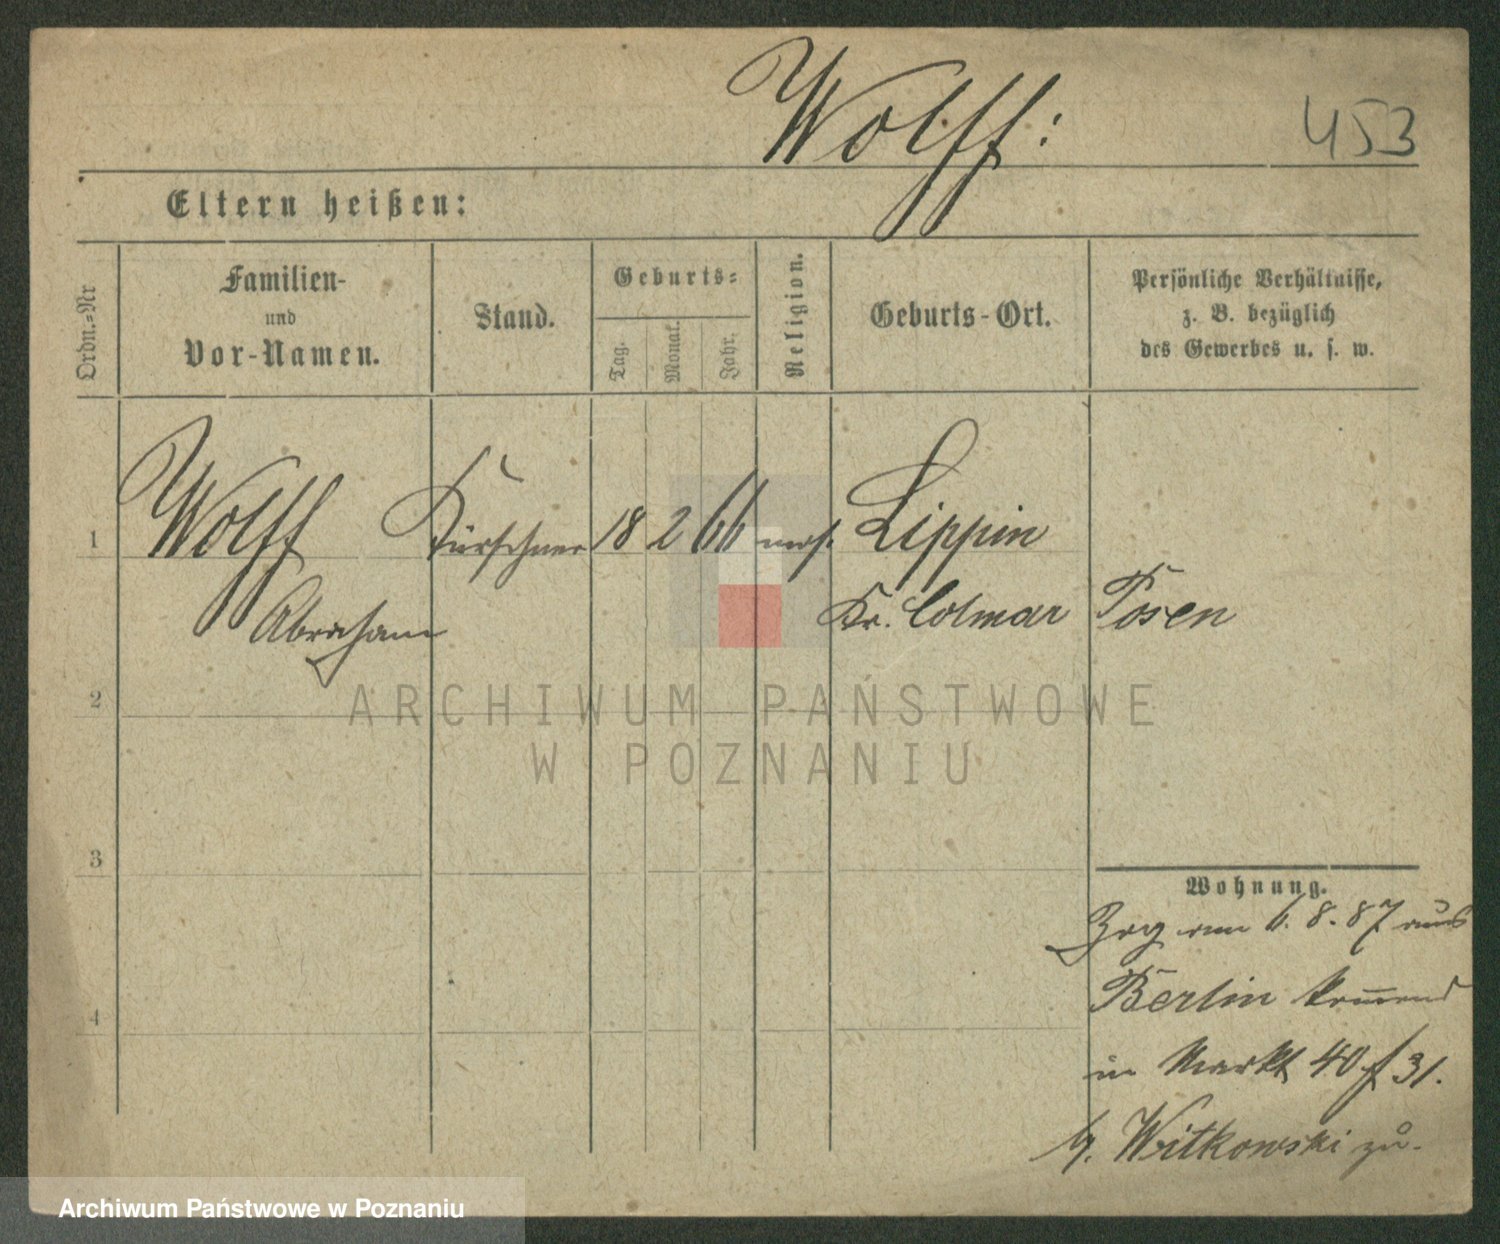 Wolff:
453
Eltern heißen:
Ordn.-Nr
Familien-
und
Vor-Namen.
Stand.
Geburts-
Tag.
Monat.
Jahr.
Religion.
Geburts-Ort.
Persönliche Verhältnisse,
z. B. bezüglich
des Gewerbes u. s. w.
1 Wolff Kürschner 18 2 66 mos. Lippin
Abraham Kr. Colmar Posen
2
3
4
Wohnung.
Zog am 6. 8. 87 aus
Berlin kommend
in Markt 40 f 31.
b/. Witkowski zu.
ARCHIWUM PAŃSTWOWE
W POZNANIU
Archiwum Państwowe w Poznaniu